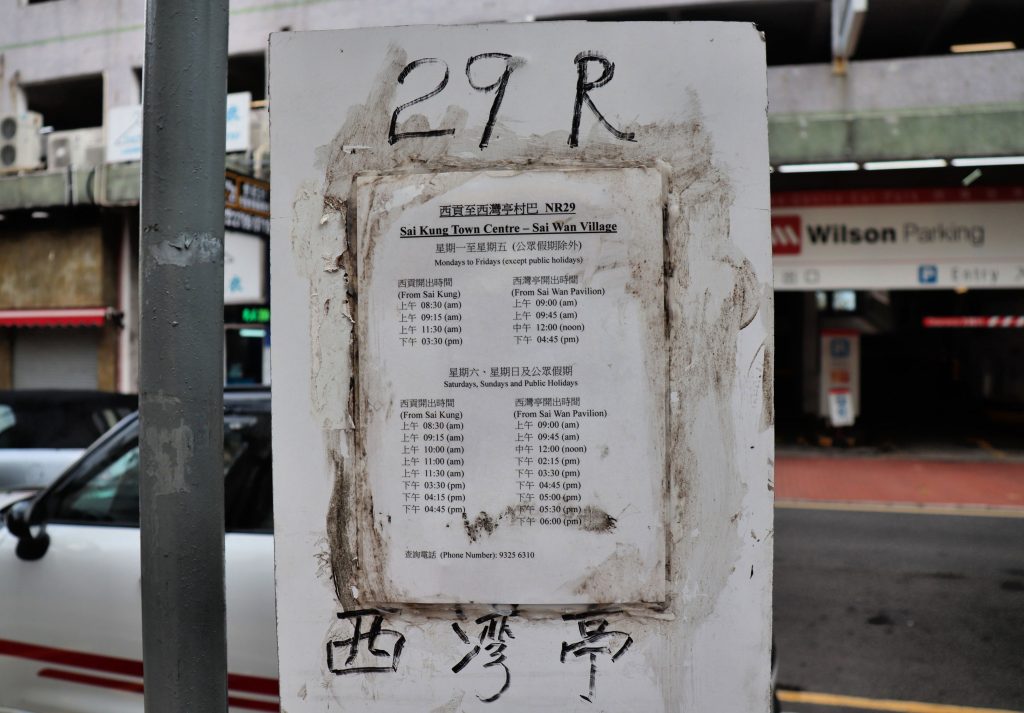 29 R
西貢至西灣亭村巴 NR29
Sai Kung Town Centre – Sai Wan Village
星期一至星期五 (公眾假期除外)
Mondays to Fridays (except public holidays)
西貢開出時間
(From Sai Kung)
上午 08:30 (am)
上午 09:15 (am)
上午 11:30 (am)
下午 03:30 (pm)
西灣亭開出時間
(From Sai Wan Pavilion)
上午 09:00 (am)
上午 09:45 (am)
中午 12:00 (noon)
下午 04:45 (pm)
星期六、星期日及公眾假期
Saturdays, Sundays and Public Holidays
西貢開出時間
(From Sai Kung)
上午 08:30 (am)
上午 09:15 (am)
上午 10:00 (am)
上午 11:00 (am)
上午 11:30 (am)
下午 03:30 (pm)
下午 04:15 (pm)
下午 04:45 (pm)
西灣亭開出時間
(From Sai Wan Pavilion)
上午 09:00 (am)
上午 09:45 (am)
中午 12:00 (noon)
下午 02:15 (pm)
下午 03:30 (pm)
下午 04:45 (pm)
下午 05:00 (pm)
下午 05:30 (pm)
下午 06:00 (pm)
查詢電話 (Phone Number): 9325 6310
西灣亭
Wilson Parking
P Entry